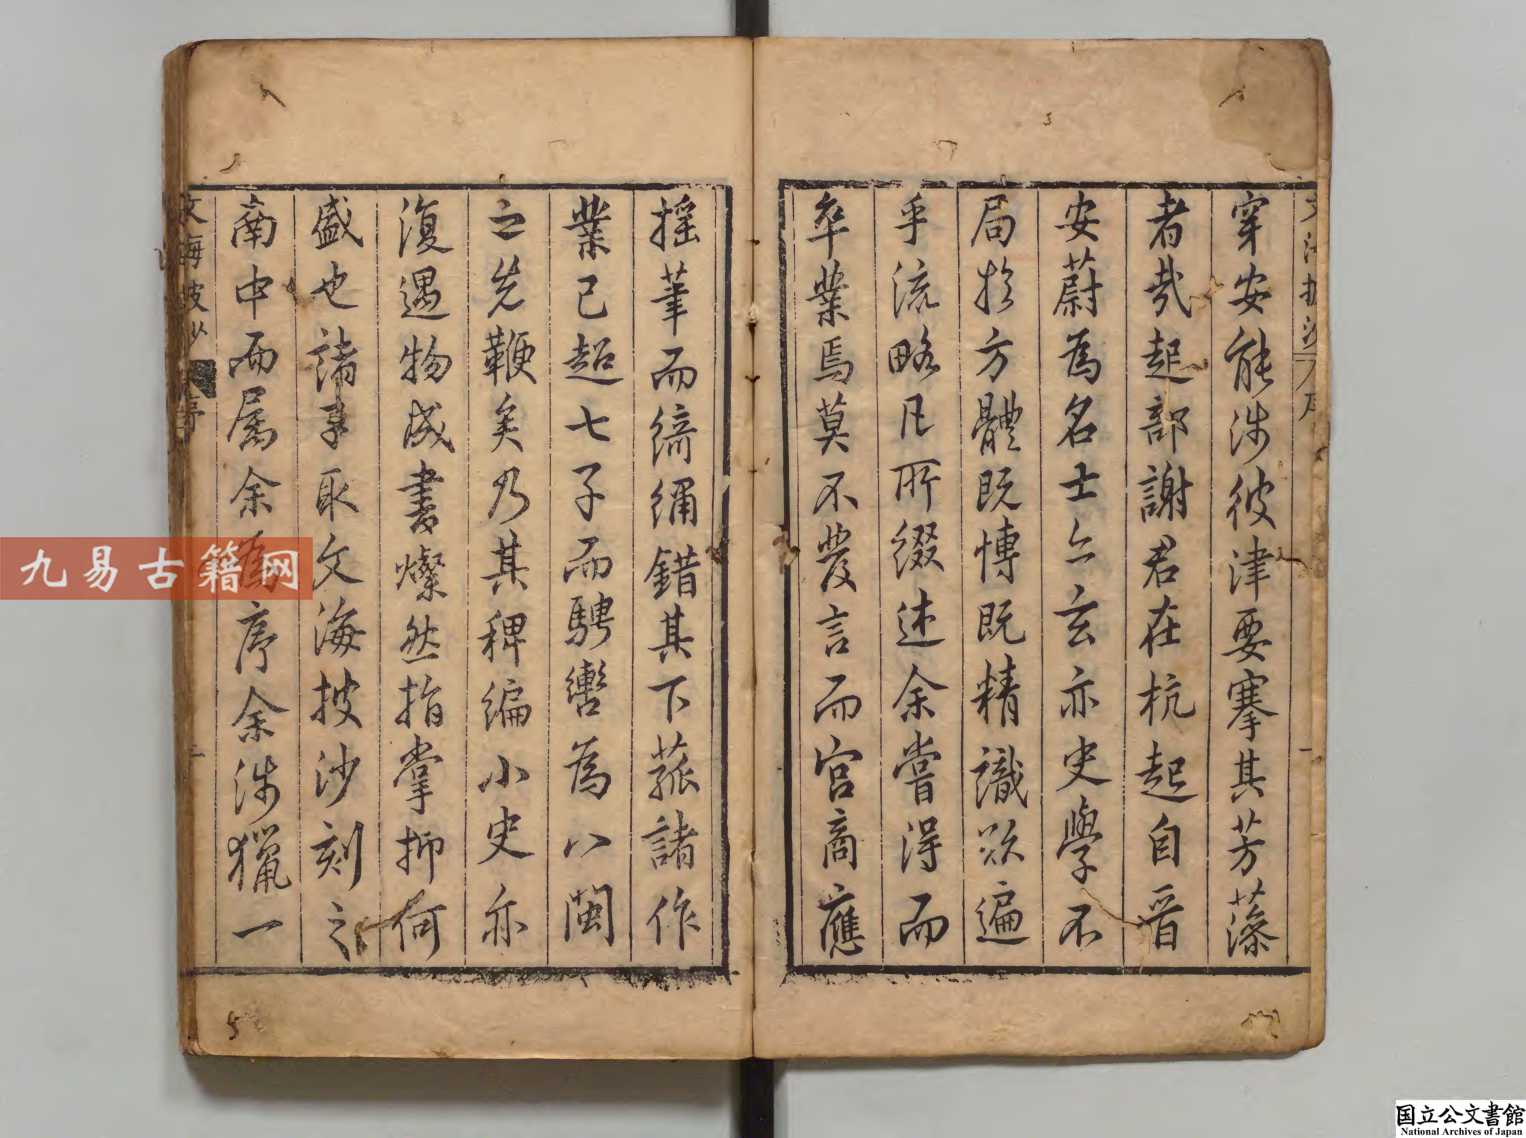 穿安能涉彼津要搴其芳藻
者哉起部謝君在杭起自晋
安蔚為名士亡玄亦史學不
局扵方體既慱既精識欲遍
乎流略凡所綴述余嘗得而
卒業焉莫不發言而宮商應
揺筆而綺繡錯其下菰諸作
業已超七子而騁轡為八閩
之先鞭矣乃其稗編小史亦
復遇物成書燦然指掌抑何
盛也諸事取文海披沙刻之
南中而属余為序余涉獵一
文海披沙
序
二
九易古籍网
国立公文書館
National Archives of Japan